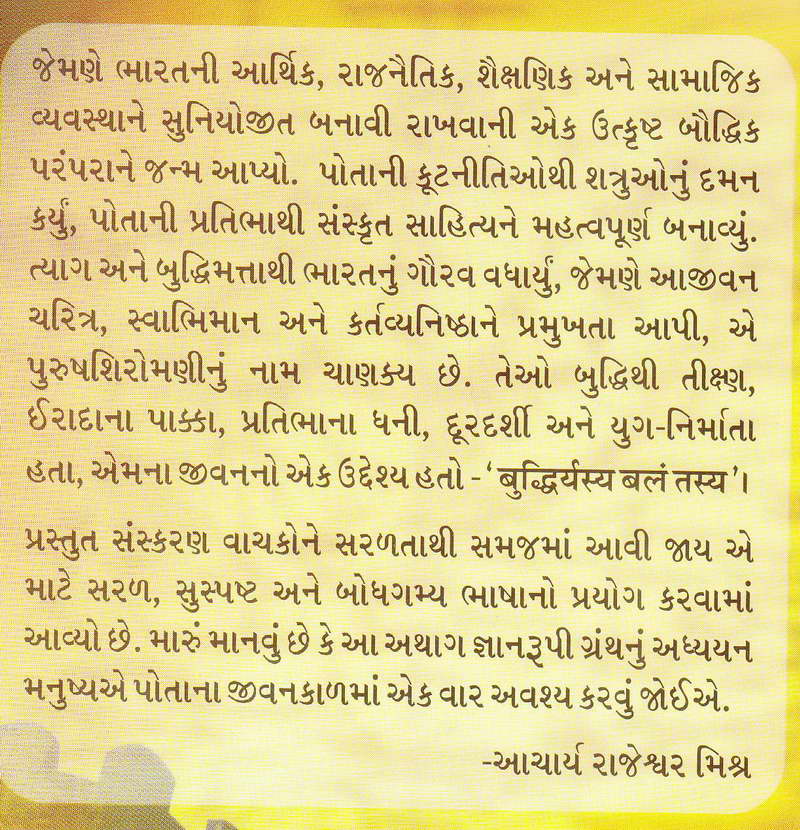 જેમણે ભારતની આર્થિક, રાજનૈતિક, શૈક્ષણિક અને સામાજિક
વ્યવસ્થાને સુનિયોજીત બનાવી રાખવાની એક ઉત્કૃષ્ટ બૌદ્ધિક
પરંપરાને જન્મ આપ્યો. પોતાની કૂટનીતિઓથી શત્રુઓનું દમન
કર્યું, પોતાની પ્રતિભાથી સંસ્કૃત સાહિત્યને મહત્વપૂર્ણ બનાવ્યું.
ત્યાગ અને બુદ્ધિમત્તાથી ભારતનું ગૌરવ વધાર્યું, જેમણે આજીવન
ચરિત્ર, સ્વાભિમાન અને કર્તવ્યનિષ્ઠાને પ્રમુખતા આપી, એ
પુરુષશિરોમણીનું નામ ચાણક્ય છે. તેઓ બુદ્ધિથી તીક્ષ્ણ,
ઈરાદાના પાક્કા, પ્રતિભાના ધની, દૂરદર્શી અને યુગ-નિર્માતા
હતા, એમના જીવનનો એક ઉદ્દેશ્ય હતો -‘बुद्धिर्यस्य बलं तस्य’।
પ્રસ્તુત સંસ્કરણ વાચકોને સરળતાથી સમજમાં આવી જાય એ
માટે સરળ, સુસ્પષ્ટ અને બોધગમ્ય ભાષાનો પ્રયોગ કરવામાં
આવ્યો છે. મારું માનવું છે કે આ અથાગ જ્ઞાનરૂપી ગ્રંથનું અધ્યયન
મનુષ્યએ પોતાના જીવનકાળમાં એક વાર અવશ્ય કરવું જોઈએ.
-આચાર્ય રાજેશ્વર મિશ્ર